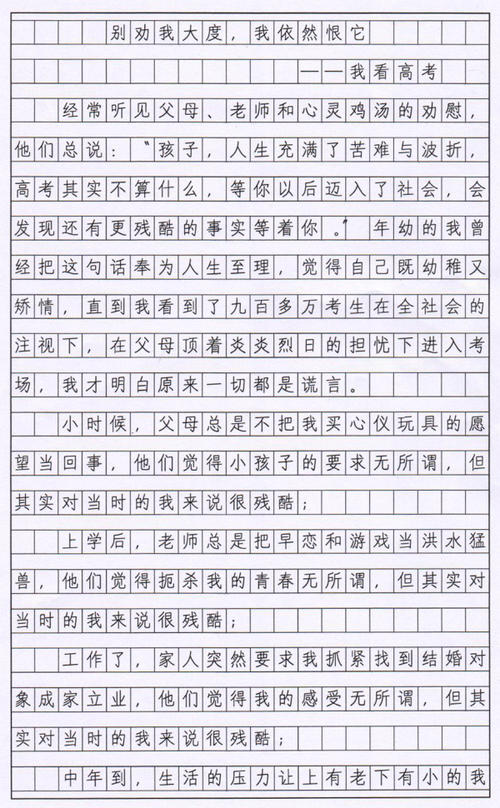 别劝我大度，我依然恨它
——我看高考
经常听见父母、老师和心灵鸡汤的劝慰，
他们总说：“孩子，人生充满了苦难与波折，
高考其实不算什么，等你以后迈入了社会，会
发现还有更残酷的事实等着你。”年幼的我曾
经把这句话奉为人生至理，觉得自己既幼稚又
矫情，直到我看到了九百多万考生在全社会的
注视下，在父母顶着炎炎烈日的担忧下进入考
场，我才明白原来一切都是谎言。
小时候，父母总是不把我买心仪玩具的愿
望当回事，他们觉得小孩子的要求无所谓，但
其实对当时的我来说很残酷；
上学后，老师总是把早恋和游戏当洪水猛
兽，他们觉得扼杀我的青春无所谓，但其实对
当时的我来说很残酷；
工作了，家人突然要求我抓紧找到结婚对
象成家立业，他们觉得我的感受无所谓，但其
实对当时的我来说很残酷；
中年到，生活的压力让上有老下有小的我